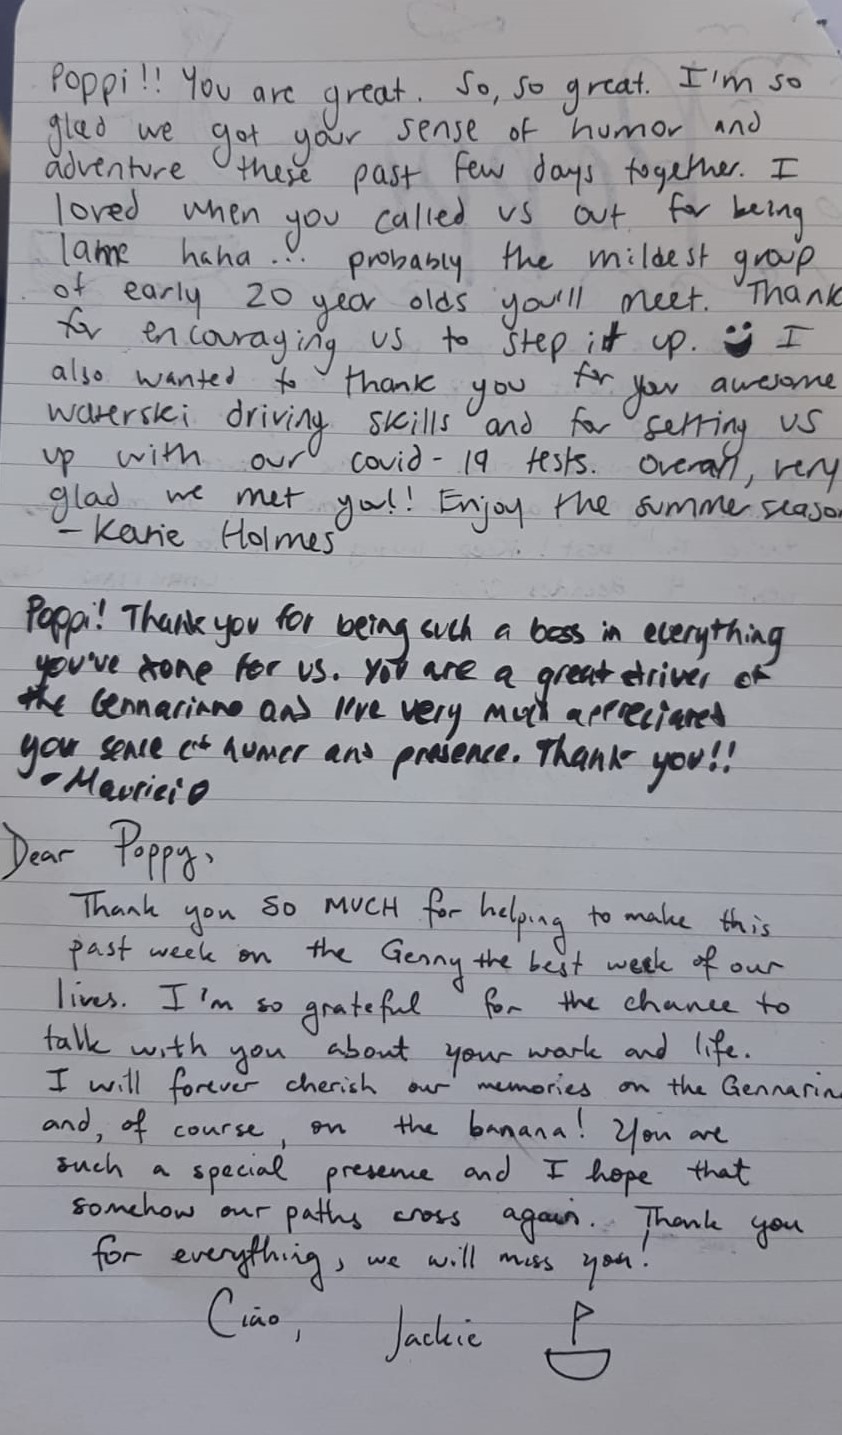 Poppi!! You are great. So, so great. I'm so
glad we got your sense of humor and
adventure these past few days together. I
loved when you called us out for being
lame haha... probably the mildest group
of early 20 year olds you'll meet. Thank
for encouraging us to step it up. I
also wanted to thank you for your awesome
waterski driving skills and for setting us
up with our covid-19 tests. Overall, very
glad we met you!! Enjoy the summer season
- Katie Holmes
Poppi! Thank you for being such a boss in everything
you've done for us. You are a great driver of
the Gennarino and I've very much appreciated
your sense of humor and presence. Thank you!!
- Mauricio
Dear Poppy,
Thank you SO MUCH for helping to make this
past week on the Genny the best week of our
lives. I'm so grateful for the chance to
talk with you about your work and life.
I will forever cherish our memories on the Gennarin
and, of course, on the banana! You are
such a special presence and I hope that
somehow our paths cross again. Thank you
for everything, we will miss you!
Ciao, Jackie